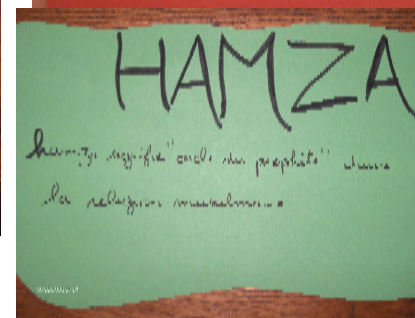 HAMZA
hamza signifie "oncle du prophète" dans
la religion musulmane